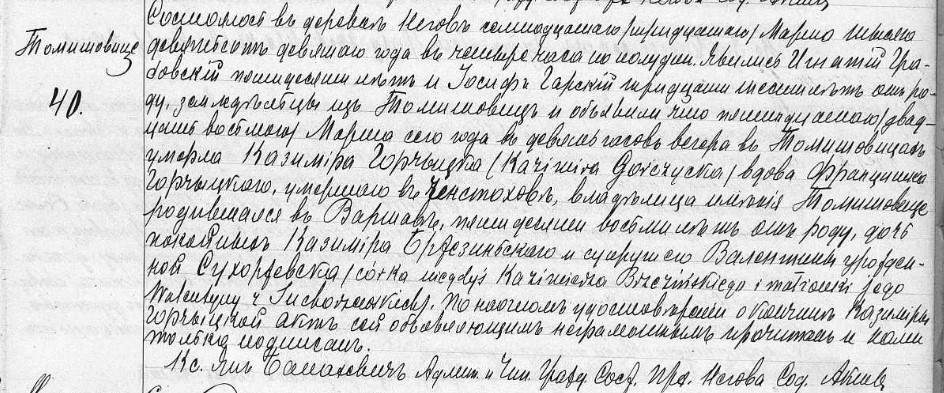 Томишовице
40.
Состоялось въ деревнѣ Негова семнадцатаго /тридцатаго/ Марта тысяча
девятьсотъ девятаго года въ четыре часа по полудни. Явились Игнатій Гра-
бовскій пятидесяти лѣтъ и Іосифъ Гарскій тридцати шести лѣтъ отъ ро-
ду, земледѣльцы изъ Томишовицъ и объявили что пятнадцатаго /двад-
цать восьмого/ Марта сего года въ девять часовъ вечера въ Томишовицахъ
умерла Казиміра Горчыцка /Kazimira Gorczycka/ вдова Францишка
Горчыцкаго, умершаго въ Ченстоховѣ, владѣлица имѣнія Томишовице
родившаяся въ Варшавѣ, пятидесяти восьми лѣтъ отъ роду, дочь
покойныхъ Казиміра Бржезинскаго и супруги его Валентины урожден-
ной Сухоржевска /córka niegdyś Kazimierza Brzezińskiego i małżonki jego
Walentyny z Suchorzewskich/. По наочномъ удостовѣреніи о кончинѣ Казиміры
Горчыцкой актъ сей объявляющимъ неграмотнымъ прочитанъ и нами
только подписанъ.
Кс. Янъ Админ. и Чин. Гражд. Сост. Прх. Негова Сод. Акты